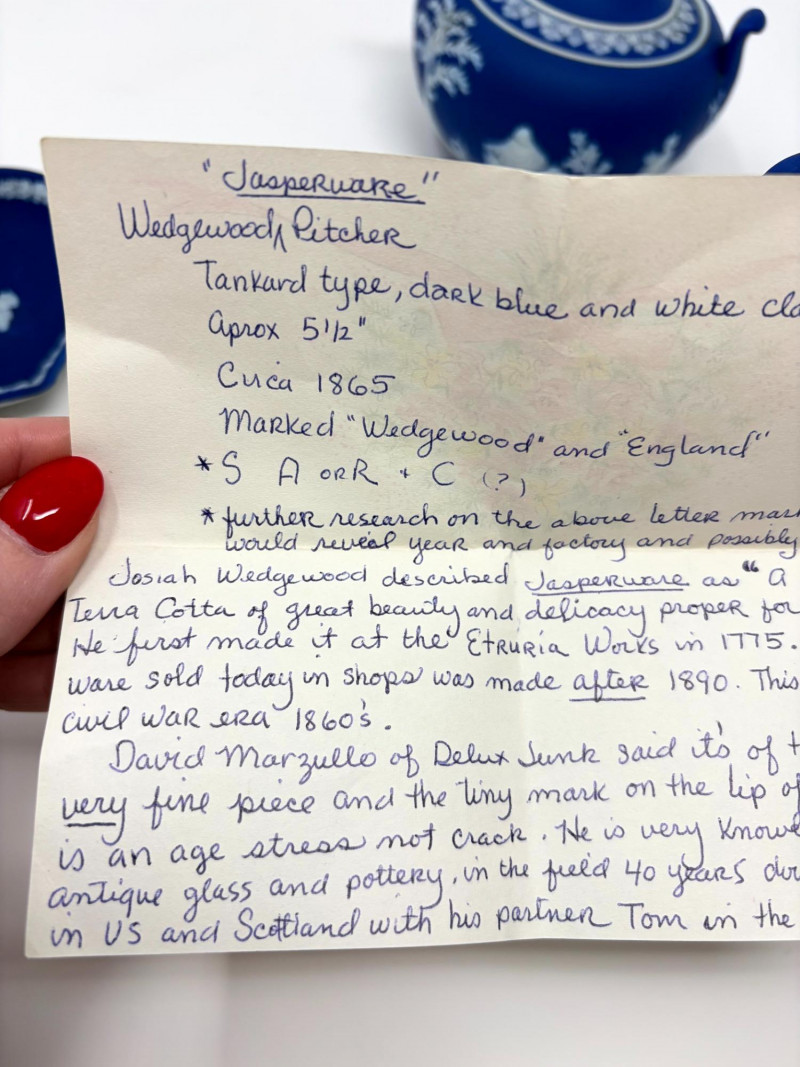 "Jasperware"
Wedgewood ∧ Pitcher
Tankard type, dark blue and white cla
Aprox 5 1/2"
Circa 1865
Marked "Wedgewood" and "England"
* S A or R + C (?)
* further research on the above letter mar
would reveal year and factory and possibly
Josiah Wedgewood described Jasperware as "a
Terra Cotta of great beauty and delicacy proper for
He first made it at the Etruria Works in 1775.
ware sold today in shops was made after 1890. This
civil war era 1860's.
David Marzullo of Delux Junk said it's of t
very fine piece and the tiny mark on the lip of
is an age stress not crack. He is very knowe
antique glass and pottery, in the field 40 years
in US and Scottland with his partner Tom in the